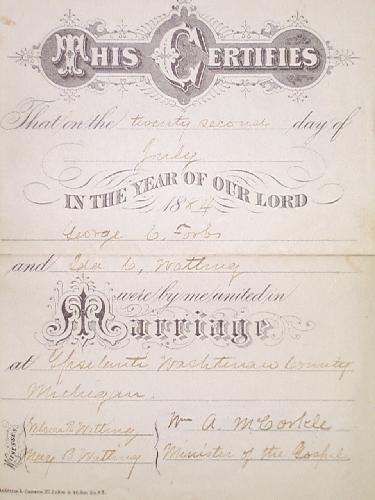 THIS CERTIFIES
That on the twenty second day of
July
IN THE YEAR OF OUR LORD
1884
George C. Forbs
and Ida C. Watling
were by me united in
Marriage
at Ypsilanti Washtenaw County
Michigan.
WITNESSES
R Watling
Mary B Watling
Wm A. McCorkle
Minister of the Gospel